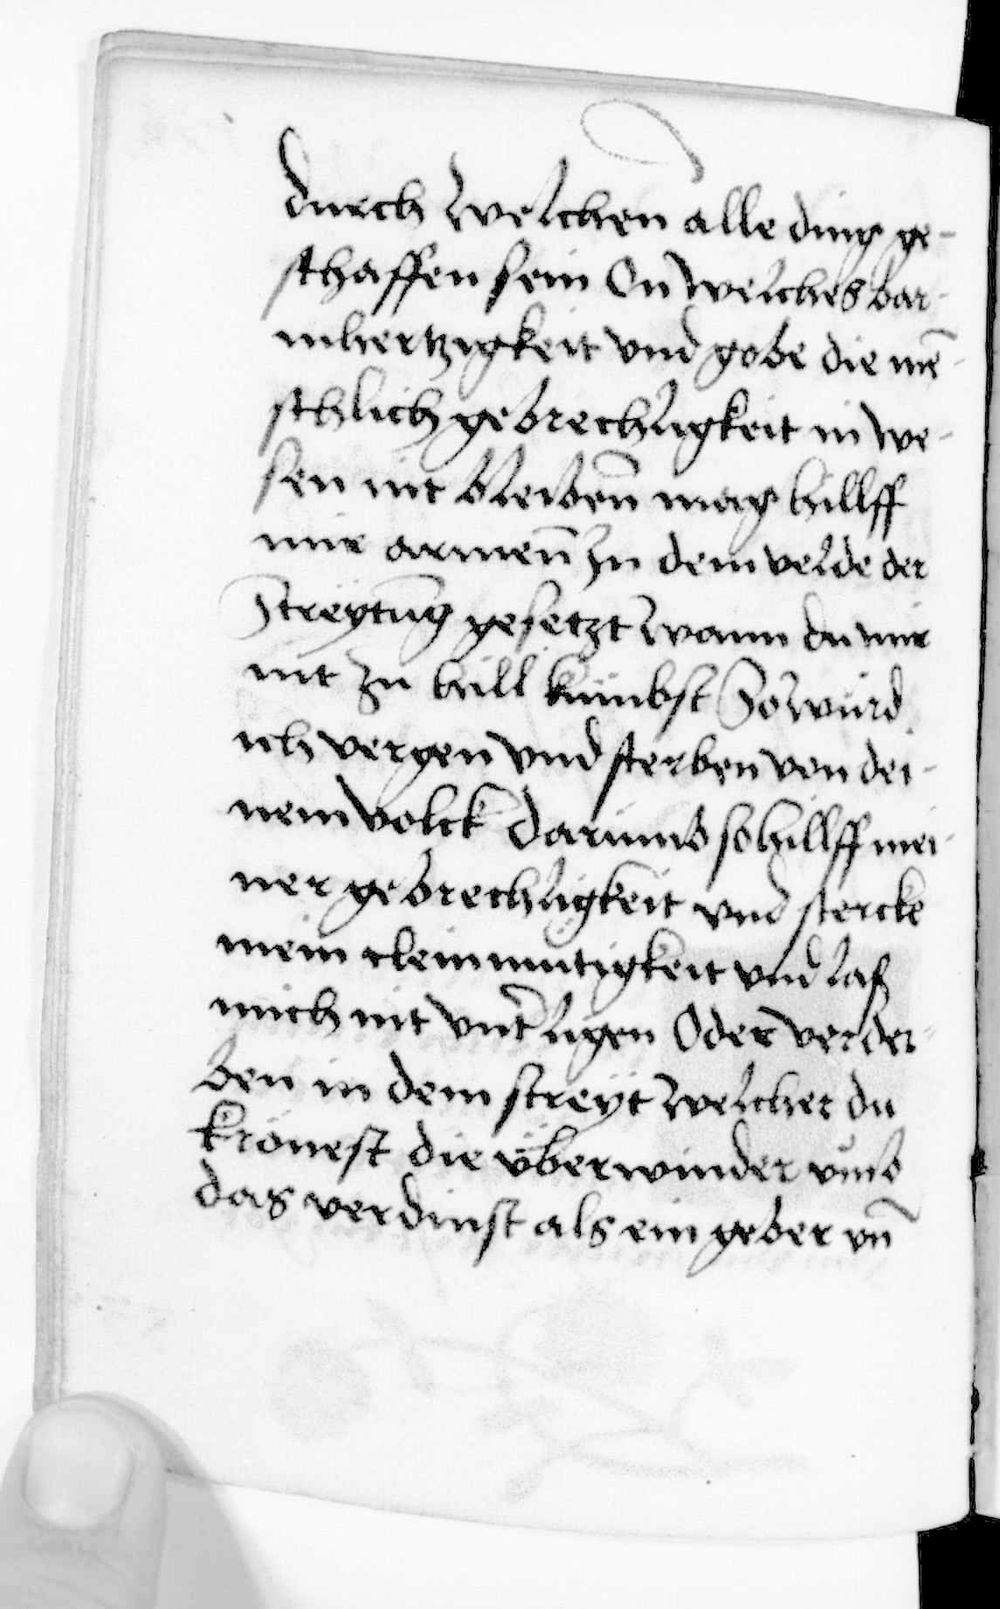 durch welchen alle ding ge-
schaffen sein On welches bar-
mhertzigkeit vnd gobe die mē-
schlich gebrechligkeit in we-
sen nit bleiben̄ mag hillff
mir armen̄ zu dem velde der
Streÿtūg gesetzt wann du mir
nit zu hill kumbst So würd
ich vergen vnd sterben von dei-
nem volck Darumb so hillff mei-
ner gebrechligkeit vnd stercke
mein cleinmutigkeit vnd laß
mich nit vnt̄ligen Oder verder-
ben in dem streÿt welcher du
krönest die überwinder vmb
das verdinst als ein geber vn̄